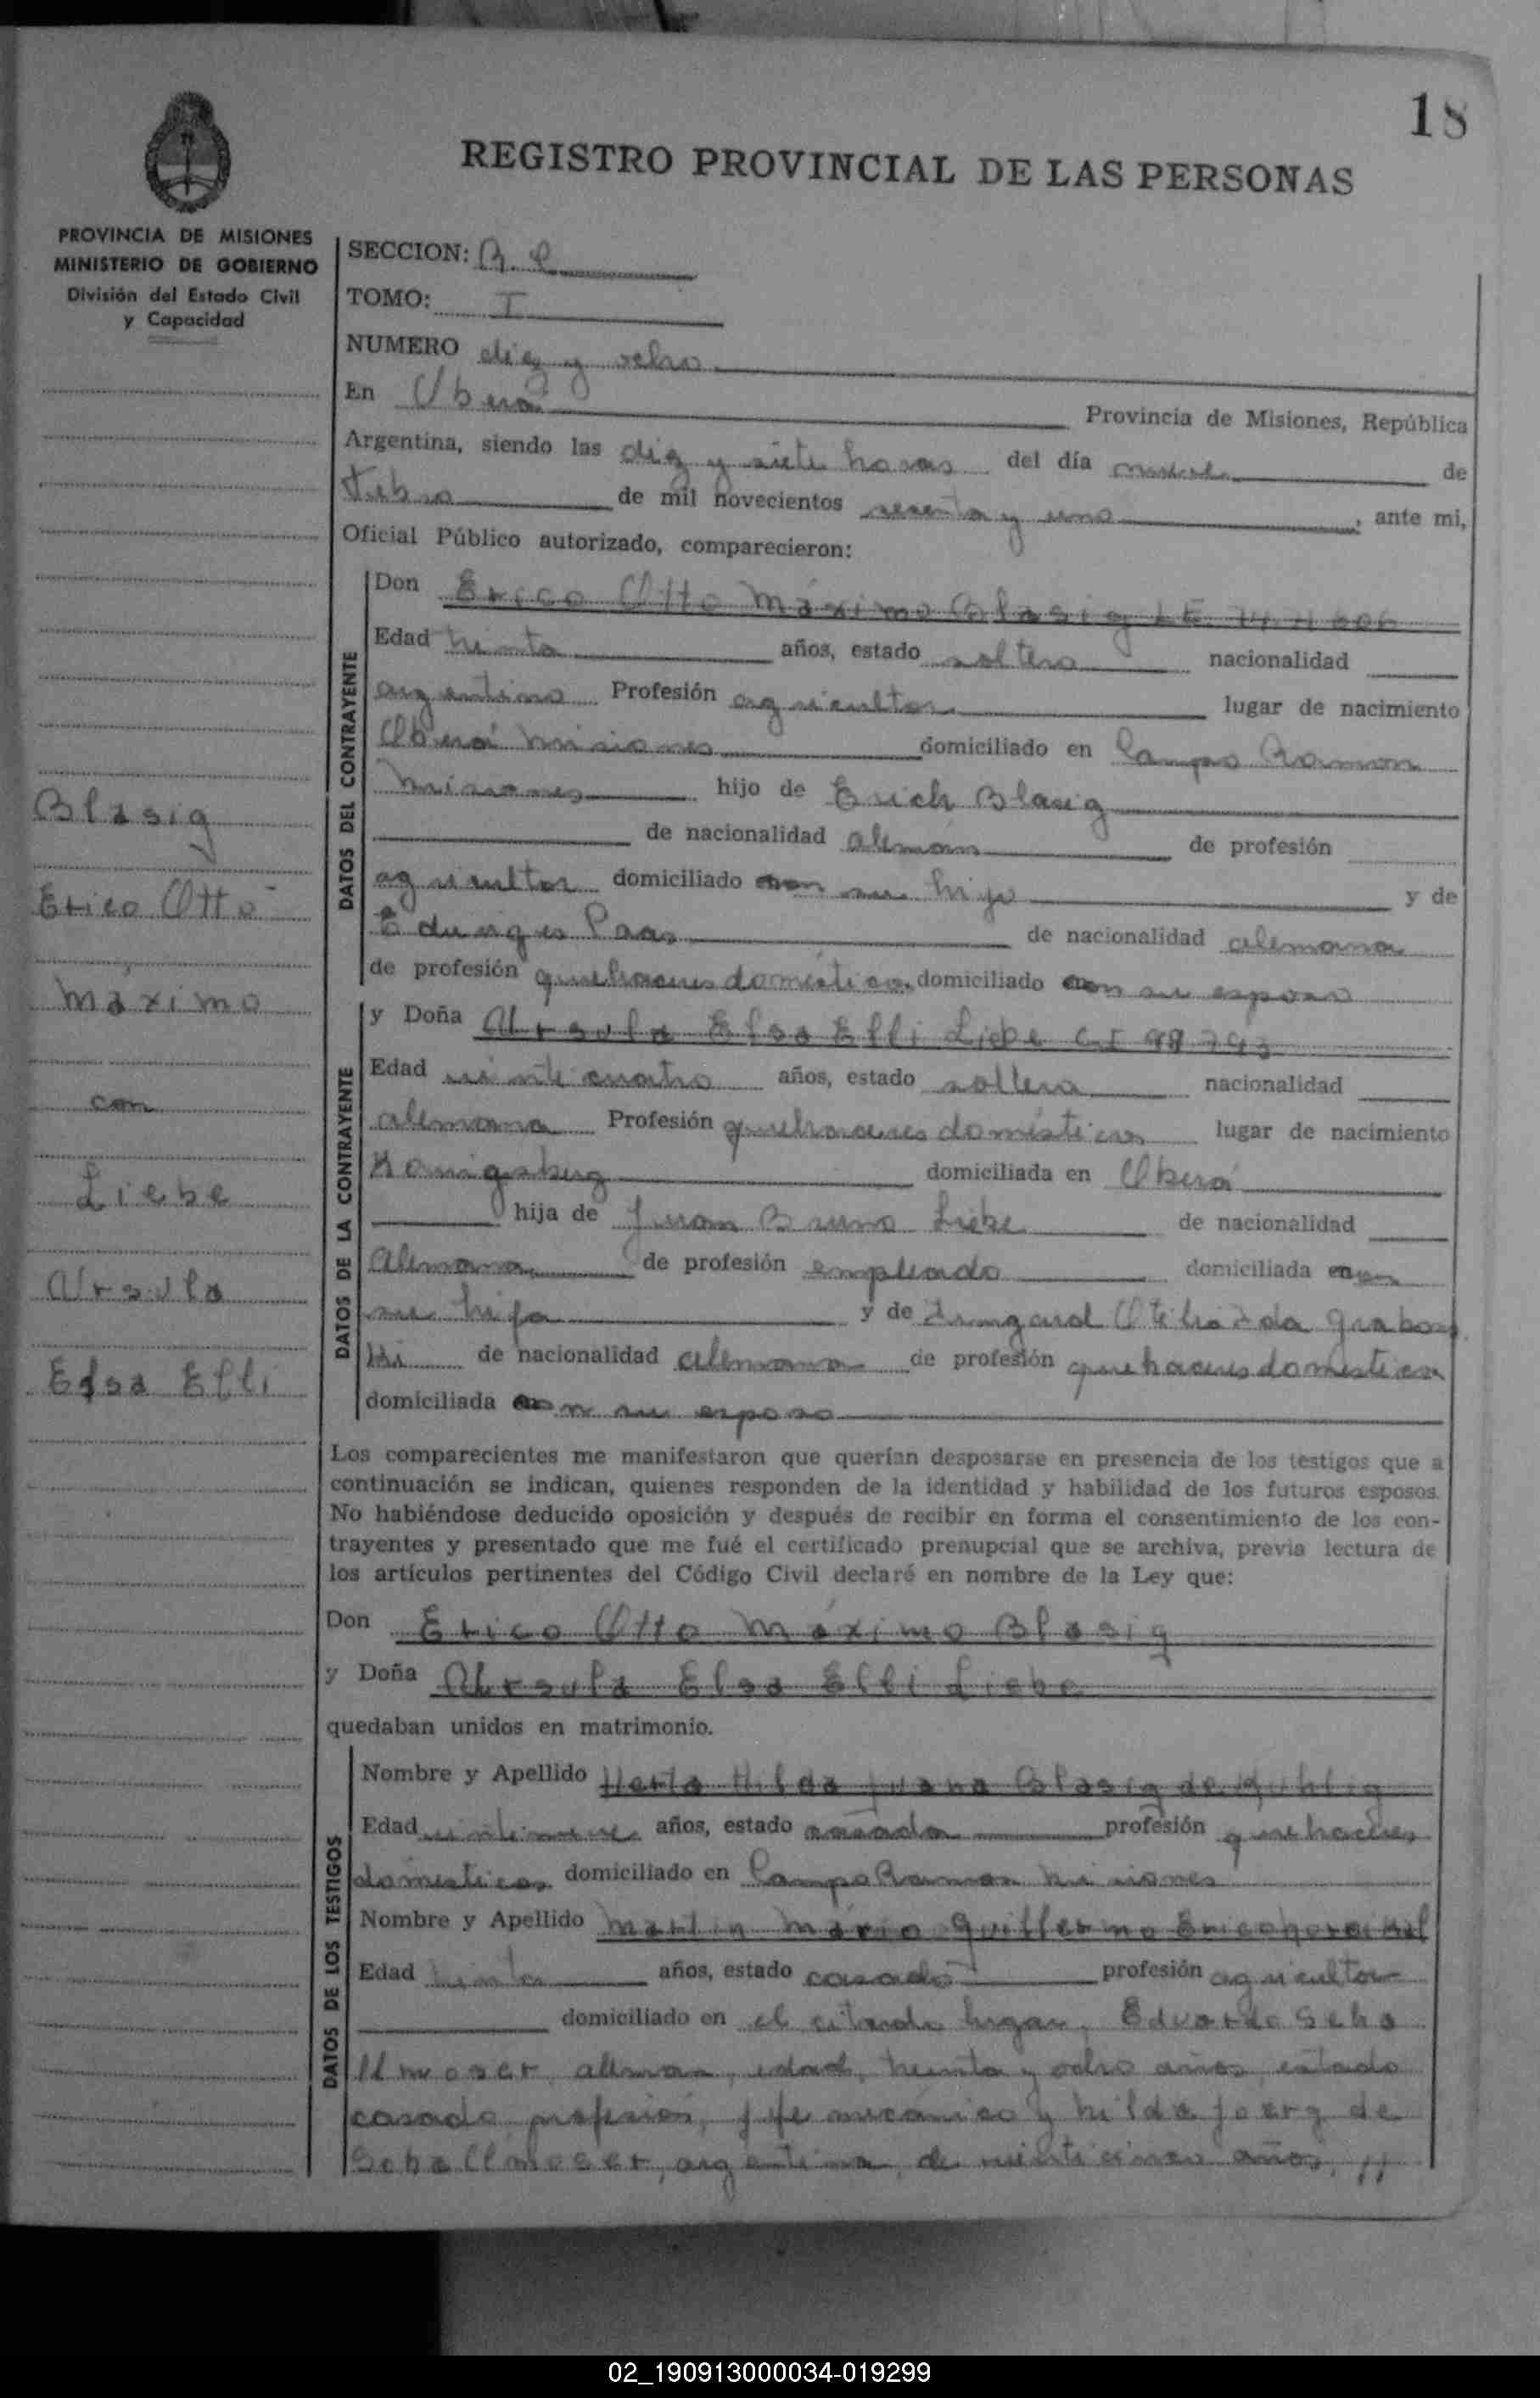 18
REGISTRO PROVINCIAL DE LAS PERSONAS
PROVINCIA DE MISIONES
MINISTERIO DE GOBIERNO
División del Estado Civil
y Capacidad
SECCION:
TOMO: I
NUMERO diez y ocho
En Oberá Provincia de Misiones, República
Argentina, siendo las diez y siete horas del día de
de mil novecientos sesenta y uno, ante mi,
Oficial Público autorizado, comparecieron:
DATOS DEL CONTRAYENTE
Don Erico Otto Máximo Blasig L E
Edad treinta años, estado soltero nacionalidad
argentino Profesión agricultor lugar de nacimiento
Oberá Misiones domiciliado en Campo Ramon
Misiones hijo de Erich Blasig
de nacionalidad alemán de profesión
agricultor domiciliado con su hijo y de
Paas de nacionalidad alemana
de profesión quehaceres domésticos domiciliado con su esposo
DATOS DE LA CONTRAYENTE
y Doña Ursula Elsa Elli Liebe C I 98.793
Edad veinte cuatro años, estado soltera nacionalidad
alemana Profesión quehaceres domésticos lugar de nacimiento
Konigsberg domiciliada en Oberá
hija de Juan Bruno Liebe de nacionalidad
Alemana de profesión empleado domiciliada en
su hija y de Irmgard Otilia Ida Grabows
ki de nacionalidad alemana de profesión quehaceres domésticos
domiciliada con su esposo
Los comparecientes me manifestaron que querían desposarse en presencia de los testigos que a
continuación se indican, quienes responden de la identidad y habilidad de los futuros esposos.
No habiéndose deducido oposición y después de recibir en forma el consentimiento de los con-
trayentes y presentado que me fué el certificado prenupcial que se archiva, previa lectura de
los artículos pertinentes del Código Civil declaré en nombre de la Ley que:
Don Erico Otto Máximo Blasig
y Doña Ursula Elsa Elli Liebe
quedaban unidos en matrimonio.
DATOS DE LOS TESTIGOS
Nombre y Apellido Herta Hilda Juana Blasig de
Edad años, estado casada profesión quehaceres
domésticos domiciliado en Campo Ramon Misiones
Nombre y Apellido Martin Mario Guillermo
Edad treinta años, estado casado profesión agricultor
domiciliado en el citado lugar, Eduardo Scha
llmoser, aleman, edad, treinta y ocho años, estado
casado, profesión, jefe mecánico y hilda Joerg de
Schallmoser, argentina, de veinticinco años, //
Blasig
Erico Otto
Máximo
con
Liebe
Ursula
Elsa Elli
02_190913000034-019299